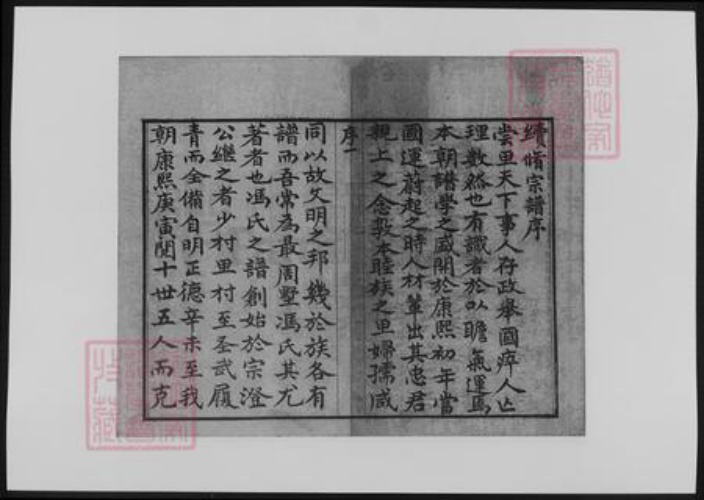 續脩宗譜序
嘗思天下事人存政舉國瘁人亡
理數然也有識者於以瞻氣運焉
本朝譜學之盛開於康熙初年當
國運蔚起之時人材輩出其忠君
親上之念敦本睦族之思婦孺咸
序一
同以故文明之邦幾於族各有
譜而吾常為最周墅馮氏其尤
著者也馮氏之譜創始於宗澄
公繼之者少村里村至圣武履
青而全備自明正德辛未至我
朝康熙庚寅閱十世五人而克